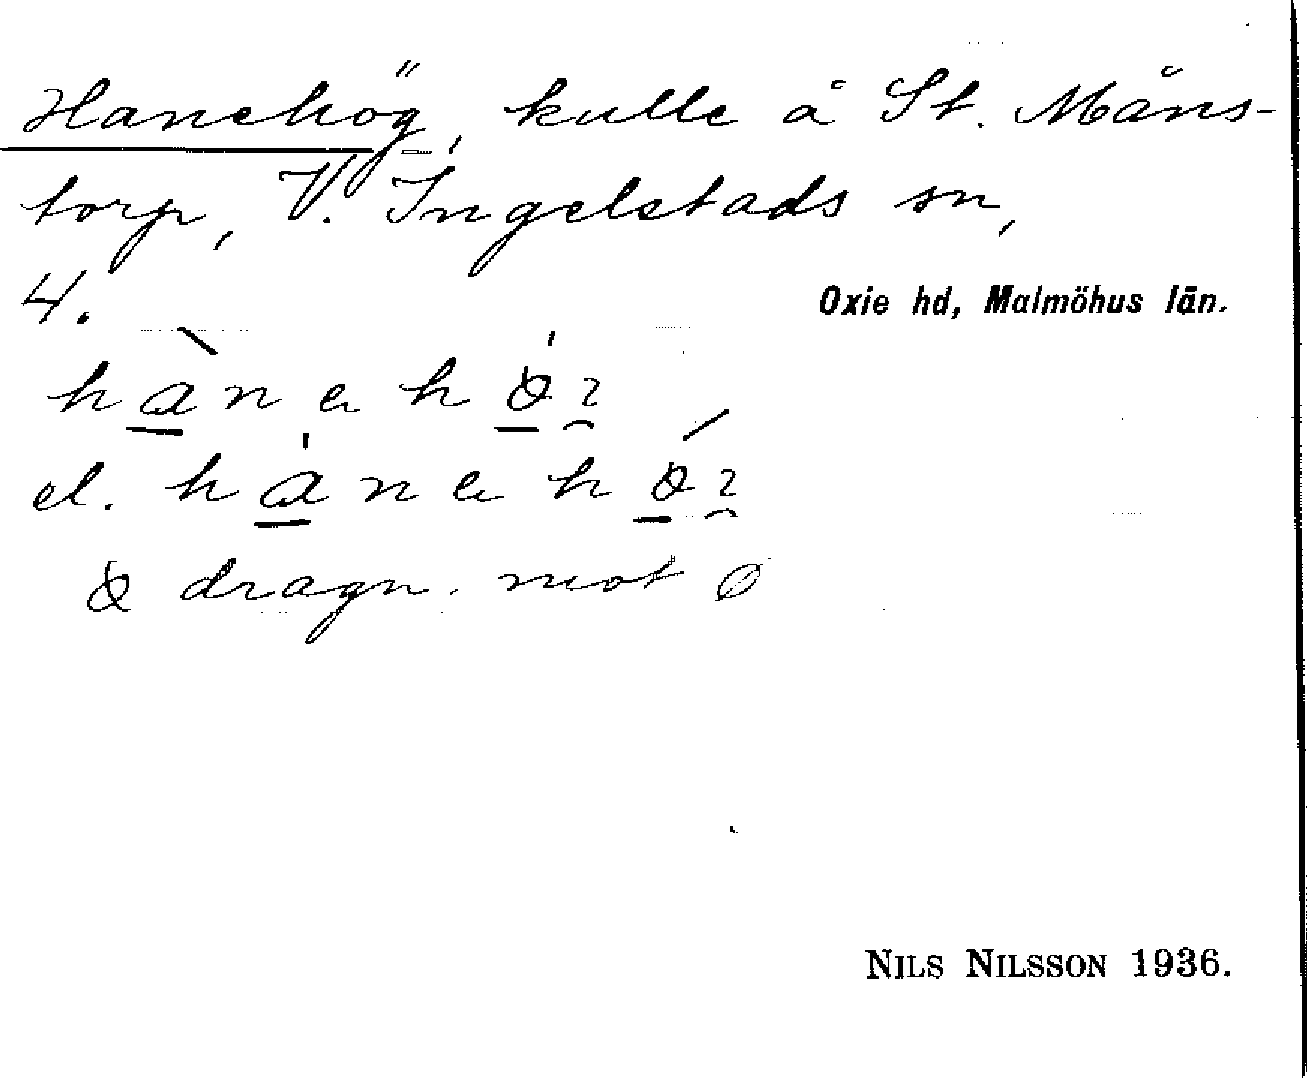 Hanehög, kulle å St. Måns-
torp, V. Ingelstads sn,
4.
Oxie hd, Malmöhus län.
hàn e h ö
el. hane h ö
dragn. mot ø
NILS NILSSON 1936.